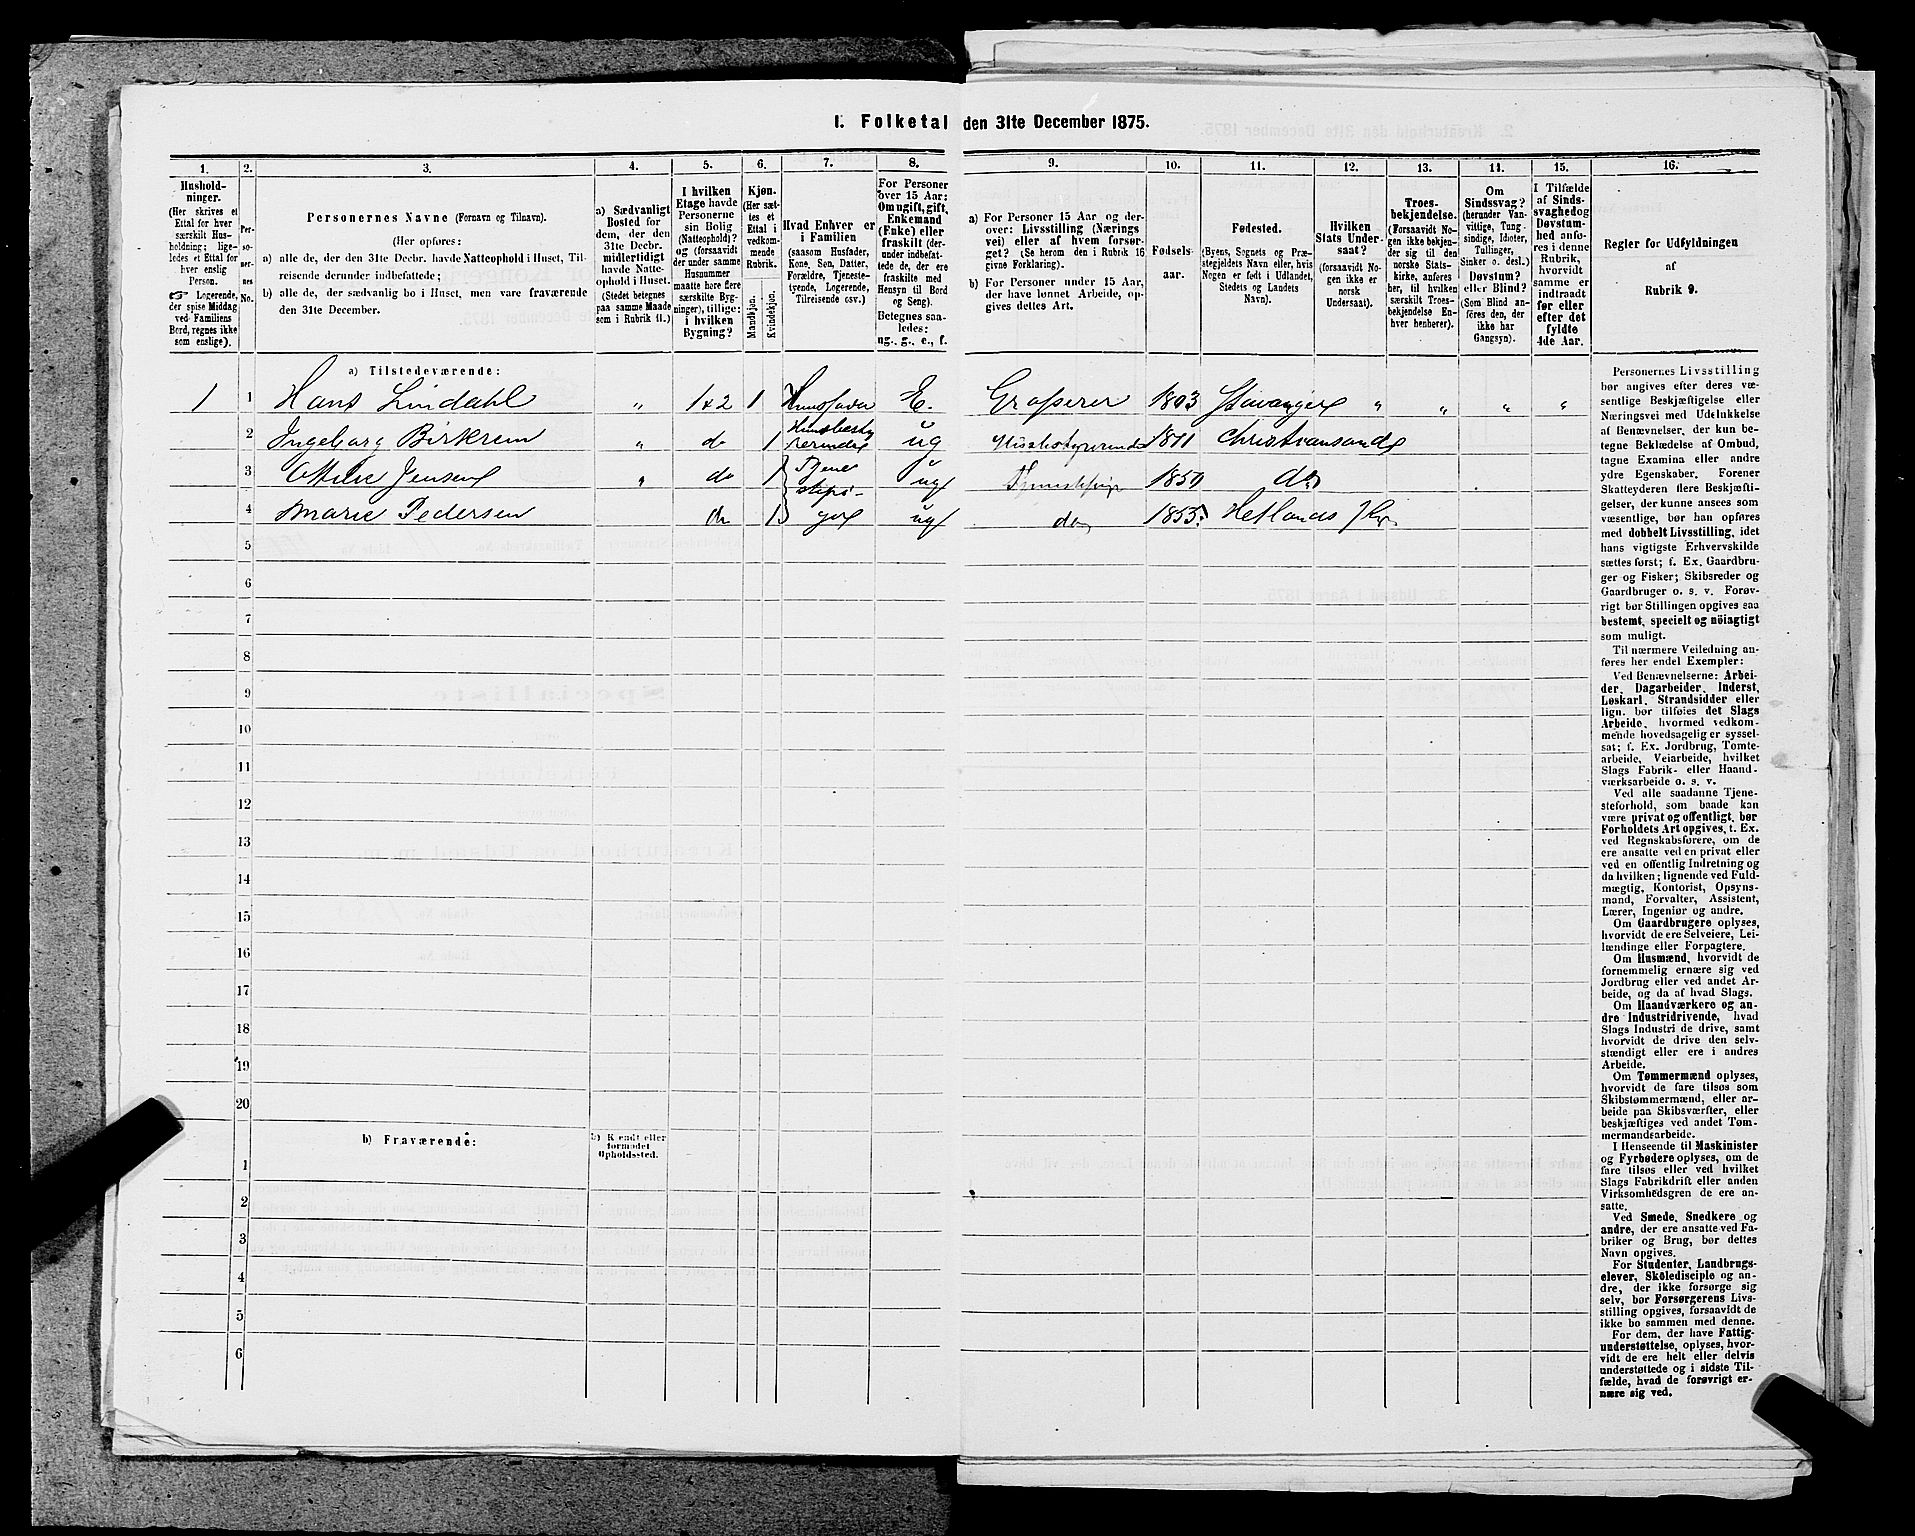 I. Folketal den 31te December 1875.
1. 2. 3. 4. 5. 6. 7. 8. 9. 10. 11. 12. 13. 14. 15. 16.
Hushold-
ninger.
(Her skrives et
Ettal for hver
særskilt Hus-
holdning; lige-
ledes et Ettal for
hver enslig
Person.
☞ Logerende,
der spise Middag
ved Familiens
Bord, regnes ikke
som enslige).
Per-
so-
ner-
nes
No.
Personernes Navne (Fornavn og Tilnavn).
(Her opføres:
a) alle de, der den 31te Decbr. havde Natteophold i Huset, Til-
reisende derunder indbefattede;
b) alle de, der sædvanlig bo i Huset, men vare fraværende
den 31te December.
a) Sædvanligt
Bosted for
dem, der den
31te Decbr.
midlertidigt
havde Natte-
ophold i Huset.
(Stedet betegnes
paa samme Maade
som i Rubrik 11.)
I hvilken
Etage havde
Personerne
sin Bolig
(Natteophold)?
og (forsaavidt
der under samme
Husnummer
maatte høre flere
særskilte Byg-
ninger), tillige:
i hvilken
Bygning?
Kjøn.
(Her sæt-
tes et
Ettal i
vedkom-
mende
Rubrik.
Mandkjøn.
Kvindekjøn.
Hvad Enhver er
i Familien
(saasom Husfader,
Kone, Søn, Datter,
Forældre, Tjeneste-
tyende, Logerende,
Tilreisende osv.)
For Personer
over 15 Aar:
Om ugift, gift,
Enkemand
(Enke) eller
fraskilt (der-
under indbefat-
tede de, der ere
fraskilte med
Hensyn til Bord
og Seng).
Betegnes saa-
ledes:
ug., g., e., f.
a) For Personer 15 Aar og der-
over: Livsstilling (Nærings
vei) eller af hvem forsør-
get? (Se herom den i Rubrik 16
givne Forklaring).
b) For Personer under 15 Aar,
der have lønnet Arbeide, op-
gives dettes Art.
Fødsels-
aar.
Fødested.
(Byens, Sognets og Præ-
stegjeldets Navn eller, hvis
Nogen er født i Udlandet,
Stedets og Landets
Navn).
Hvilken
Stats Under-
saat?
(forsaavidt No-
gen ikke er
norsk
Undersaat).
Troes-
bekjendelse.
(Forsaavidt No-
gen ikke bekjen-
der sig til den
norske Stats-
kirke, anføres
her, til hvilken
særskilt Troes-
bekjendelse En-
hver henhører).
Om
Sindssvag?
(herunder Van-
vittige, Tung-
sindige, Idioter,
Tullinger,
Sinker o. desl.)
Døvstum?
eller Blind?
(Som Blind an-
føres den, der
ikke har
Gangsyn).
I Tilfælde
af Sinds-
svaghed og
Døvstum-
hed anfø-
res i denne
Rubrik,
hvorvidt
samme er
indtraadt
før eller
efter det
fyldte
4de Aar.
Regler for Udfyldningen
af
Rubrik 9.
a) Tilstedeværende:
1 1 Hans Lindahl " 1+2 1 Huusfader E. Grosserer 1803 Stavanger " " " "
2 Ingeborg Birkrem " do 1 Huusbesty rerinde ug 1811 Christiansand
3 Jensen " do 1 Tjene ug 1850 do
4 Marie Pedersen do 1 ug do 1855 Hetlands
5
6
7
8
9
10
11
12
13
14
15
16
17
18
19
20
b) Fraværende:
b) Kjendt eller
formodet
Opholdssted.
1
2
3
4
5
6
Personernes Livsstilling
bør angives efter deres væ-
sentlige Beskjæftigelse eller
Næringsvei med Udelukkelse
af Benævnelser, der kun be-
tegne Beklædelse af Ombud,
tagne Examina eller andre
ydre Egenskaber. Forener
Skatteyderen flere Beskjæfti-
gelser, der kunne ansees som
væsentlige, bør han opføres
med dobbelt Livsstilling, idet
hans vigtigste Erhvervskilde
sættes først; f. Ex. Gaardbru-
ger og Fisker; Skibsreder og
Gaardbruger o. s. v. Forøv-
rigt bør Stillingen opgives saa
bestemt, specielt og nöiagtigt
som muligt.
Til nærmere Veiledning an-
føres her endel Exempler:
Ved Benævnelserne: Arbei-
der, Dagarbeider, Inderst,
Løskarl, Strandsidder eller
lign. bør tilføies det Slags
Arbeide, hvormed vedkom-
mende hovedsagelig er syssel-
sat; f. Ex. Jordbrug, Tomte-
arbeide, Veiarbeide, hvilket
Slags Fabrik- eller Haand-
værksarbeide o. s. v.
Ved alle saadanne Tjene-
steforhold, som baade kan
være privat og offentligt, bør
Forholdets Art opgives, t. Ex.
ved Regnskabsførere, om de
ere ansatte ved en privat eller
ved en offentlig Indretning og
da hvilken; lignende ved Fuld-
mægtig, Kontorist, Opsyns-
mand, Forvalter, Assistent,
Lærer, Ingeniør og andre.
Om Gaardbrugere oplyses,
hvorvidt de ere Selveiere, Lei-
lændinge eller Forpagtere.
Om Husmænd, hvorvidt de
fornemmelig ernære sig ved
Jordbrug eller ved andet Ar-
beide, og da af hvad Slags.
Om Haandværkere og an-
dre Industridrivende, hvad
Slags Industri de drive, samt
hvorvidt de drive den selv-
stændigt eller ere i andres
Arbeide.
Om Tømmermænd oplyses,
hvorvidt de fare tilsøs som
Skibstømmermænd, eller ar-
beide paa Skibsværfter, eller
beskjæftiges ved andet Tøm-
mermandarbeide.
I Henseende til Maskinister
og Fyrbødere oplyses, om de
fare tilsøs eller ved hvilket
Slags Fabrikdrift eller anden
Virksomhedsgren de ere an-
satte.
Ved Smede, Snedkere og
andre, der ere ansatte ved Fa-
briker og Brug, bør dettes
Navn opgives.
For Studenter, Landbrugs-
elever, Skoledisciple og an-
dre, der ikke forsørge sig
selv, bør Forsørgerens Livs-
stilling opgives, forsaavidt de
ikke bo sammen med denne.
For dem, der have Fattig-
understøttelse, oplyses, hvor-
vidt de ere helt eller delvis
understøttede og i sidste Til-
fælde, hvad de forøvrigt er-
nære sig ved.